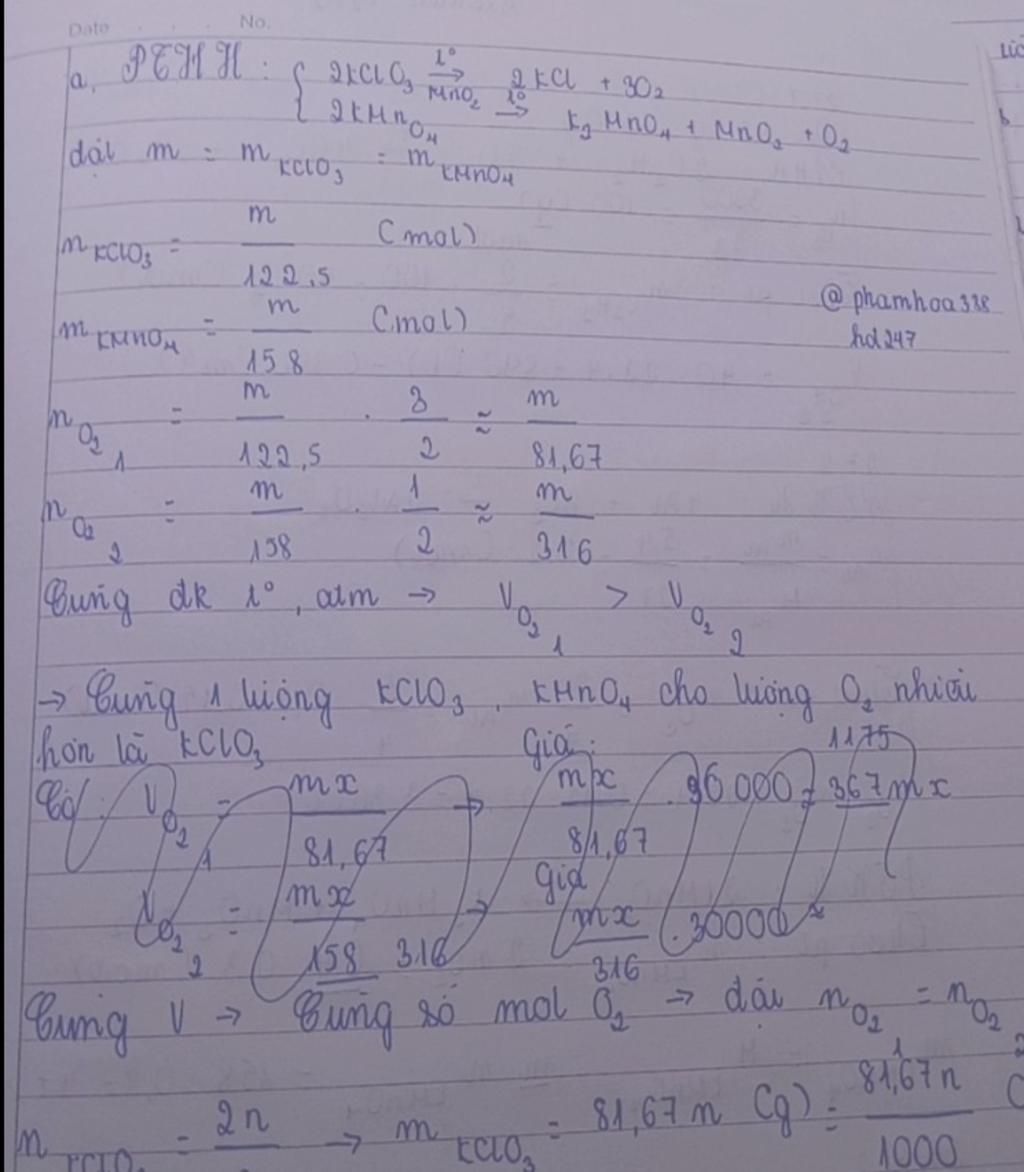 Date No.
a, PTHH : { 2KClO₃ t°→ MnO₂ 2KCl + 3O₂
2KMnO₄ t°→ K₂MnO₄ + MnO₂ + O₂
đặt m = m KClO₃ = m KMnO₄
n KClO₃ = m / 122,5 (mol)
n KMnO₄ = m / 158 (mol)
@phamhoa338
hd247
n O₂ 1 = m / 122,5 . 3 / 2 ≈ m / 81,67
n O₂ 2 = m / 158 . 1 / 2 ≈ m / 316
Cùng đk t°, atm → V O₂ 1 > V O₂ 2
→ Cùng 1 lượng KClO₃, KMnO₄ cho lượng O₂ nhiều
hơn là KClO₃
Giá:
1175
Có: V O₂ 1 = mx / 81,67 → mx / 81,67 . 96 000 = 367 mx
Giá
V O₂ 2 = mx / 158 316 → mx / 316 . 30000 ≈
Cùng V → Cùng số mol O₂ → đặt n O₂ 1 = n O₂ 2
n KClO₃ = 2n → m KClO₃ = 81,67 n (g) = 81,67 n / 1000 (